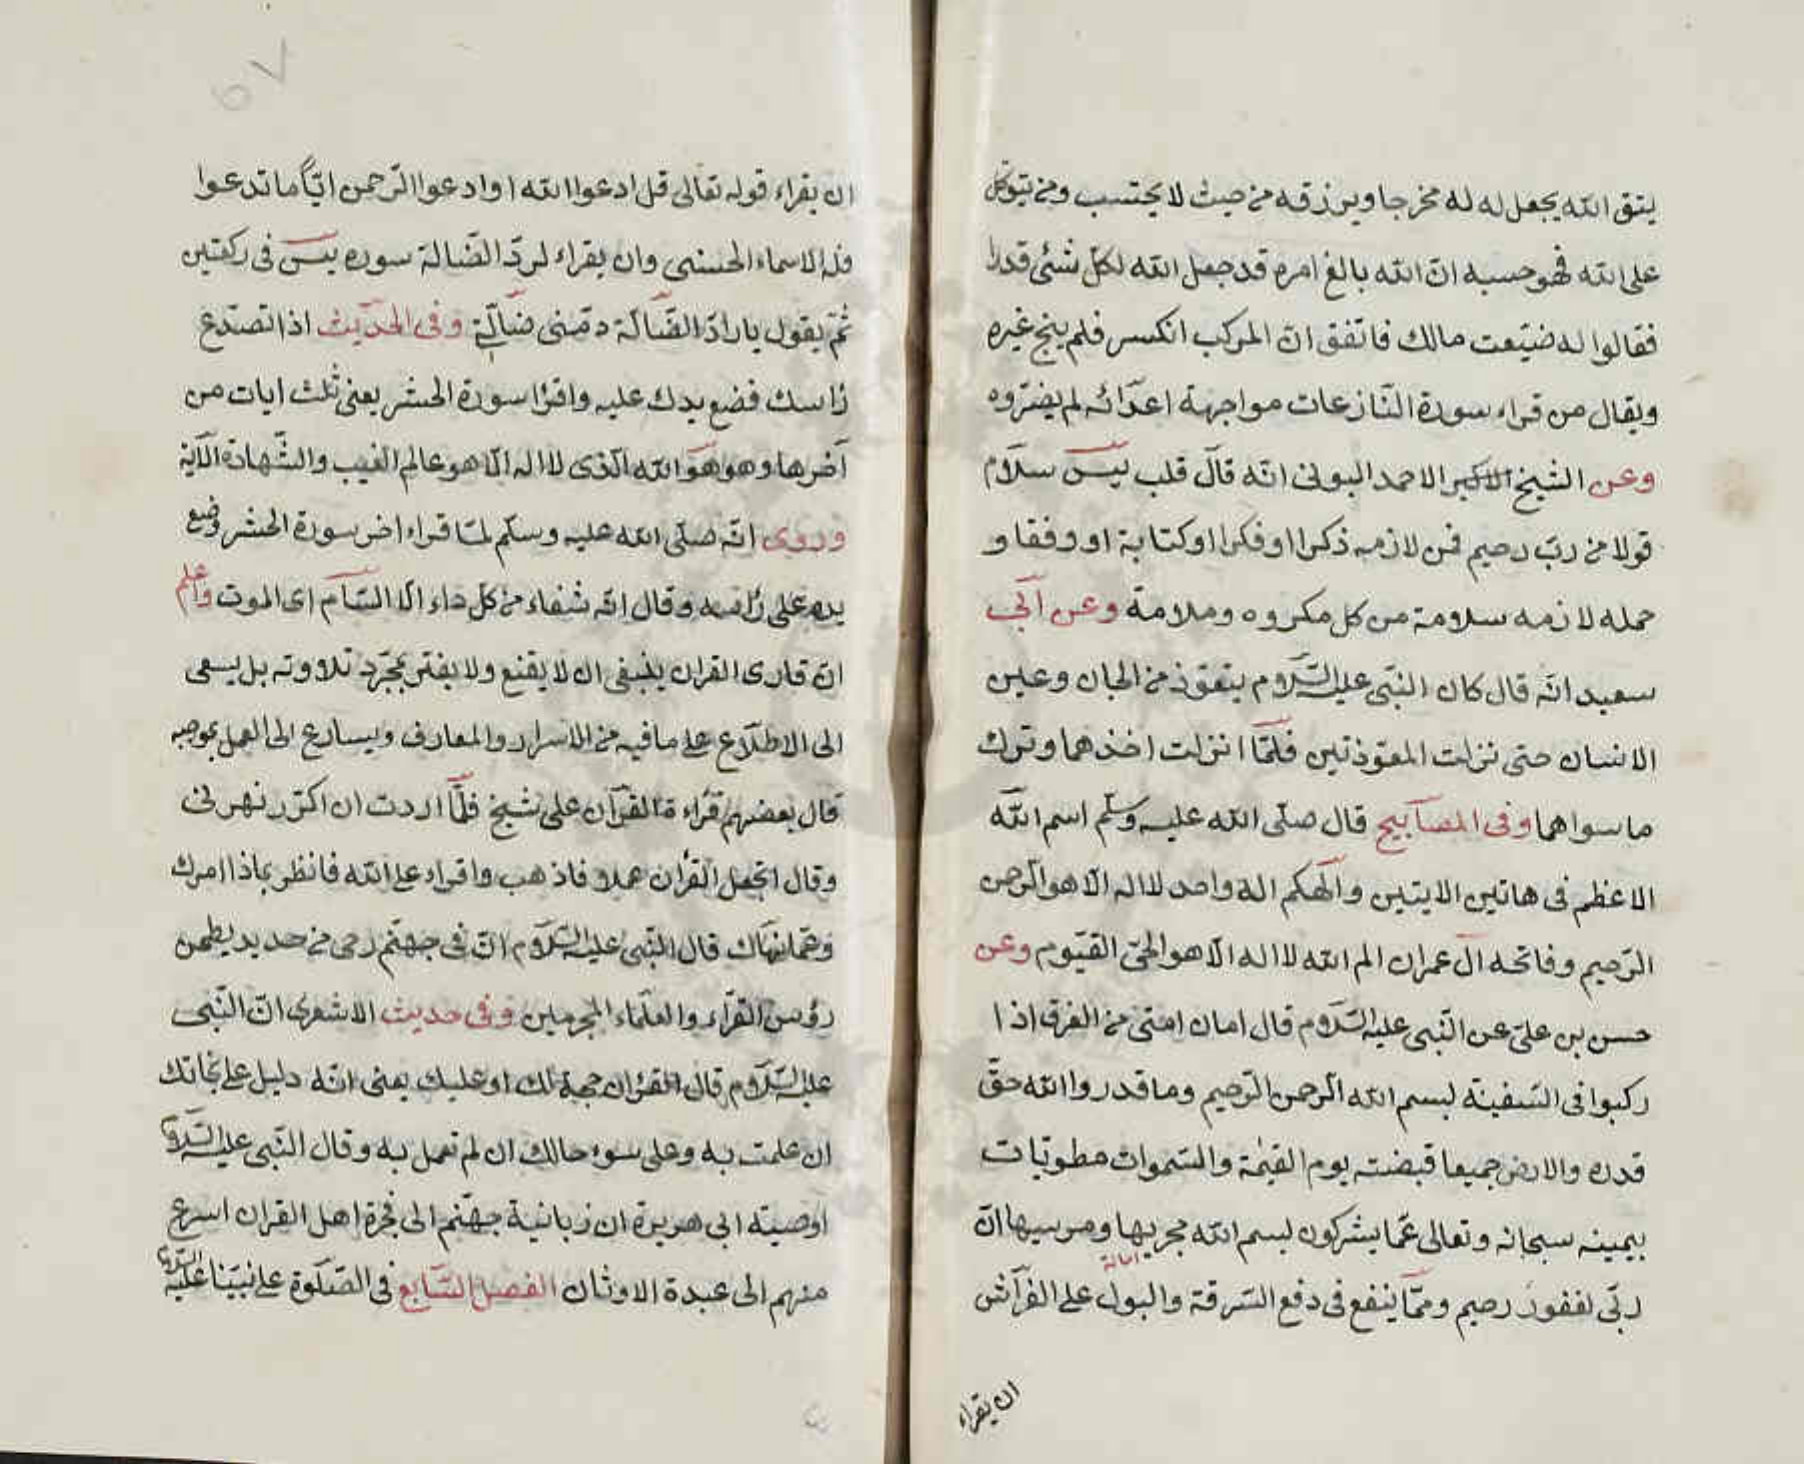 يتق الله يجعل له مخرجا ويرزقه من حيث لا يحتسب ومن يتوكل
على الله فهو حسبه ان الله بالغ امره قد جعل الله لكل شئ قدرا
فقالوا له ضيّعت مالك فاتّفق انّ المركب انكسر فلم ينج غيره
ويقال من قراء سورة النّازعات مواجهة اعدائه لم يضرّوه
وعن الشيخ الاكبر الاحمد البونى انّه قال قلب يس سلام
قولا من ربّ رحيم فمن لازمه ذكرا اوفكرا اوكتابة او وفقا و
حمله لازمه سلامة من كل مكروه وملامة وعن ابى
سعيد انّه قال كان النّبى عليه السّلام يتعوّذ من الجان وعين
الانسان حتى نزلت المعوّذتين فلمّا انزلت اخذهما وترك
ما سواهما وفى المصابيح قال صلّى الله عليه وسلّم اسم الله
الاعظم فى هاتين الايتين والهكم اله واحد لا اله الّا هو الرّحمن
الرّحيم وفاتحه ال عمران الم الله لا اله الّا هو الحىّ القيّوم وعن
حسن بن علىّ عن النّبى عليه السّلام قال امان امتى من الغرق اذا
ركبوا فى السّفينة لبسم الله الرّحمن الرّحيم وما قدروا الله حقّ
قدره والارض جميعا قبضته يوم القيمة والسّموات مطويّات
بيمينه سبحانه وتعالى عمّا يشركون لبسم الله مجريها ومرسيها انّ
امالة
ربّى لغفور رحيم وممّا ينفع فى دفع السّرقة والبول على الفراش
ان يقراء
ان يقراء قوله تعالى قل ادعوا الله او ادعوا الرّحمن ايّاً ما تدعوا
فله الاسماء الحسنى وان يقراء لردّ الضّالة سوره يس فى ركعتين
ثمّ يقول يارادّ الضّالّة ردّ منى ضالّتى وفى الحديث اذا تصدّع
رأسك فضع يدك عليه واقرأ سورة الحشر يعنى ثلث ايات من
آخرها وهو هو الله الّذى لا اله الّا هو عالم الغيب والشّهادة الآية
وروى انّه صلّى الله عليه وسلّم لمّا قراء اخر سورة الحشر وضع
يده على رأسه وقال انّه شفاء من كلّ داء الّا السّام اى الموت واعلم
انّ قارى القران ينبغى ان لا يقنع ولا يغتر بمجرّد تلاوته بل يسعى
الى الاطّلاع على ما فيه من الاسرار والمعارف ويسارع الى العمل بموجبه
قال بعضهم قراءة القرآن على شيخ فلمّا اردت ان اكرّر نهرنى
وقال اتجعل القرأن عملا فاذهب واقراء على الله فانظر بماذا امرك
وعمّا نهاك قال النّبى عليه السّلام انّ فى جهنّم رحى من حديد يطحن
رؤس القرّاء والعلماء المجرمين وفى حديث الاشعرى انّ النّبى
عليه السّلام قال القرأن حجة لك او عليك يعنى انّه دليل على نجاتك
ان علمت به وعلى سوء حالك ان لم تعمل به وقال النّبى عليه السّلام
اوصيته ابى هريرة ان زبانية جهنّم الى فجرة اهل القران اسرع
منهم الى عبدة الاوثان الفصل السّابع فى الصّلوة على نبيّنا عليه السلام